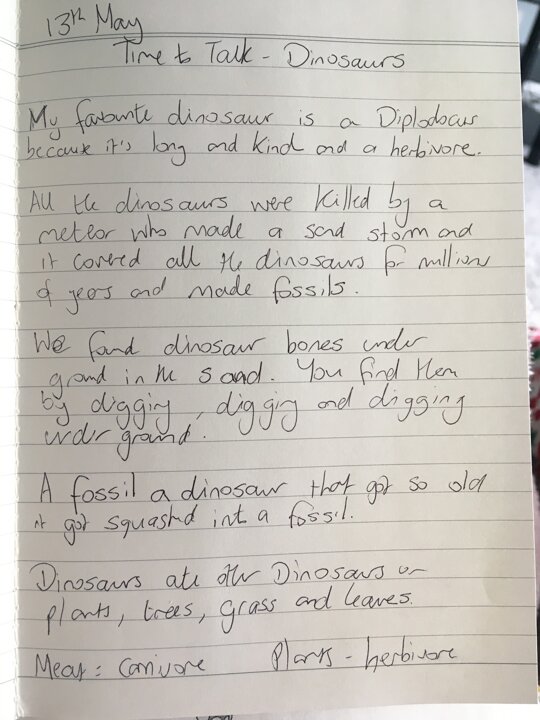 13th May
Time to Talk - Dinosaurs
My favourite dinosaur is a Diplodocus
because it's long and kind and a herbivore.
All the dinosaurs were killed by a
meteor who made a sand storm and
it covered all the dinosaurs for millions
of years and made fossils.
We found dinosaur bones under
ground in the sand. You find them
by digging, digging and digging
under ground.
A fossil a dinosaur that got so old
it got squashed into a fossil.
Dinosaurs ate other Dinosaurs or
plants, trees, grass and leaves.
Meat = Carnivore Plants - herbivore